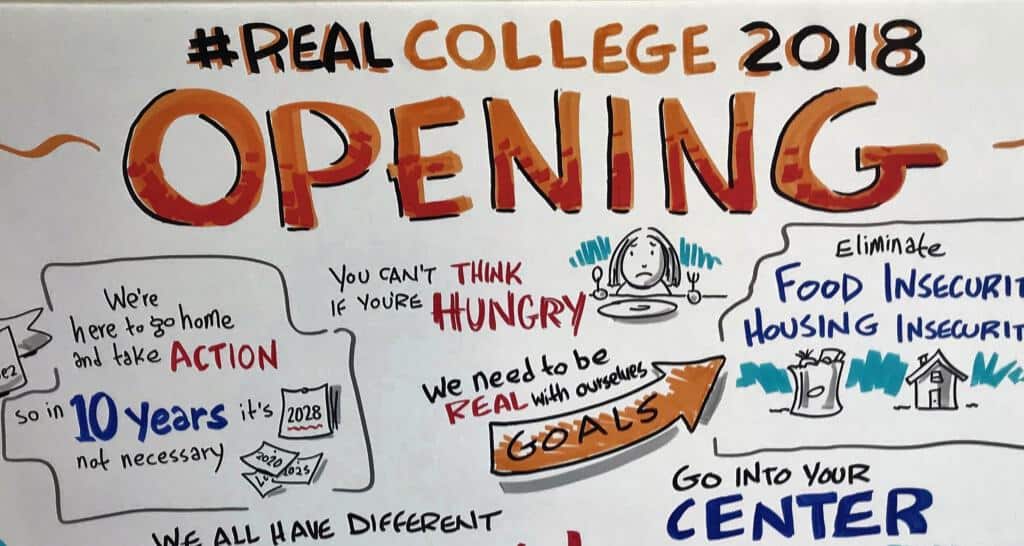 #REAL COLLEGE 2018
OPENING
We're
here to go home
and take ACTION
so in 10 years it's 2028
not necessary
2020
2025
YOU CAN'T THINK
IF YOU'RE HUNGRY
We need to be
REAL with ourselves
GOALS
Eliminate
FOOD INSECURIT
HOUSING INSECURIT
GO INTO YOUR
CENTER
WE ALL HAVE DIFFERENT